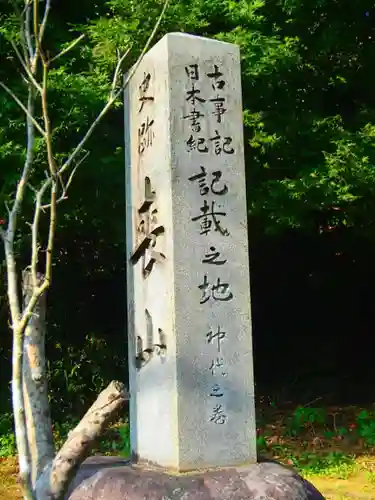 史跡 喪山
古事記
日本書紀
記載之地
神代之巻